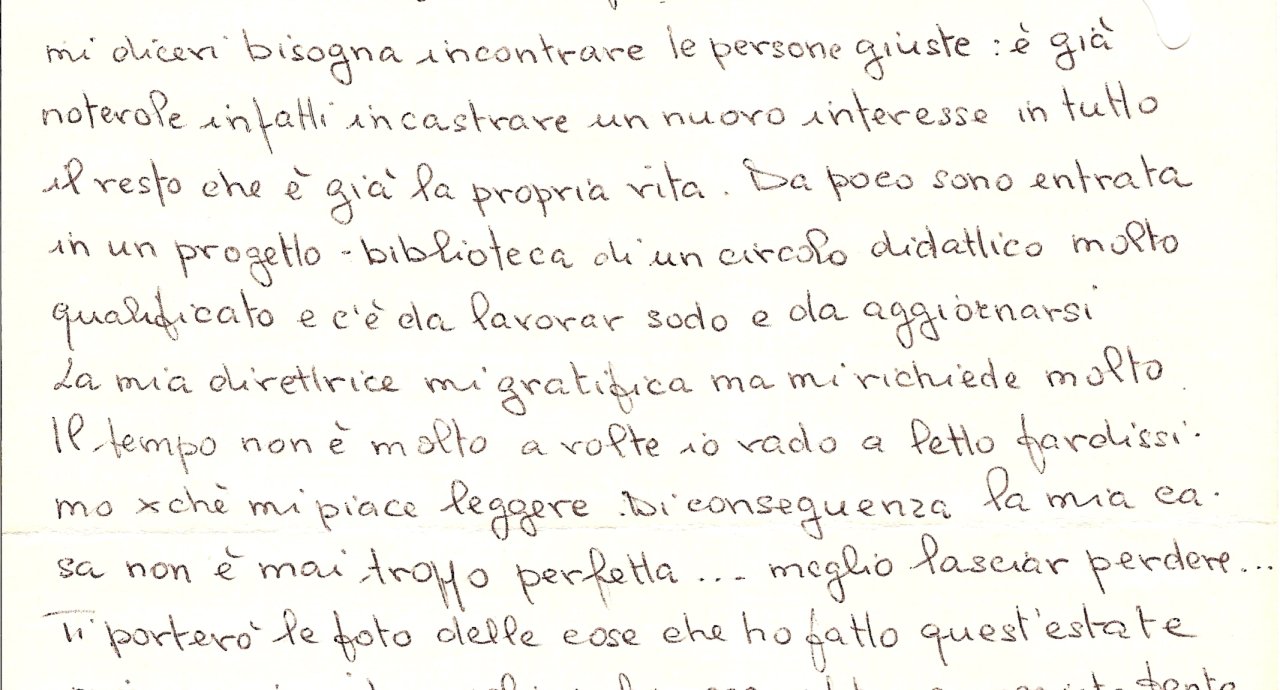 mi dicevi bisogna incontrare le persone giuste : è già
notevole infatti incastrare un nuovo interesse in tutto
il resto che è già la propria vita. Da poco sono entrata
in un progetto - biblioteca di un circolo didattico molto
qualificato e c'è da lavorar sodo e da aggiornarsi
La mia direttrice mi gratifica ma mi richiede molto.
Il tempo non è molto a volte io vado a letto tardissi-
mo xchè mi piace leggere. Di conseguenza la mia ca-
sa non è mai troppo perfetta ... meglio lasciar perdere...
Ti porterò le foto delle cose che ho fatto quest'estate